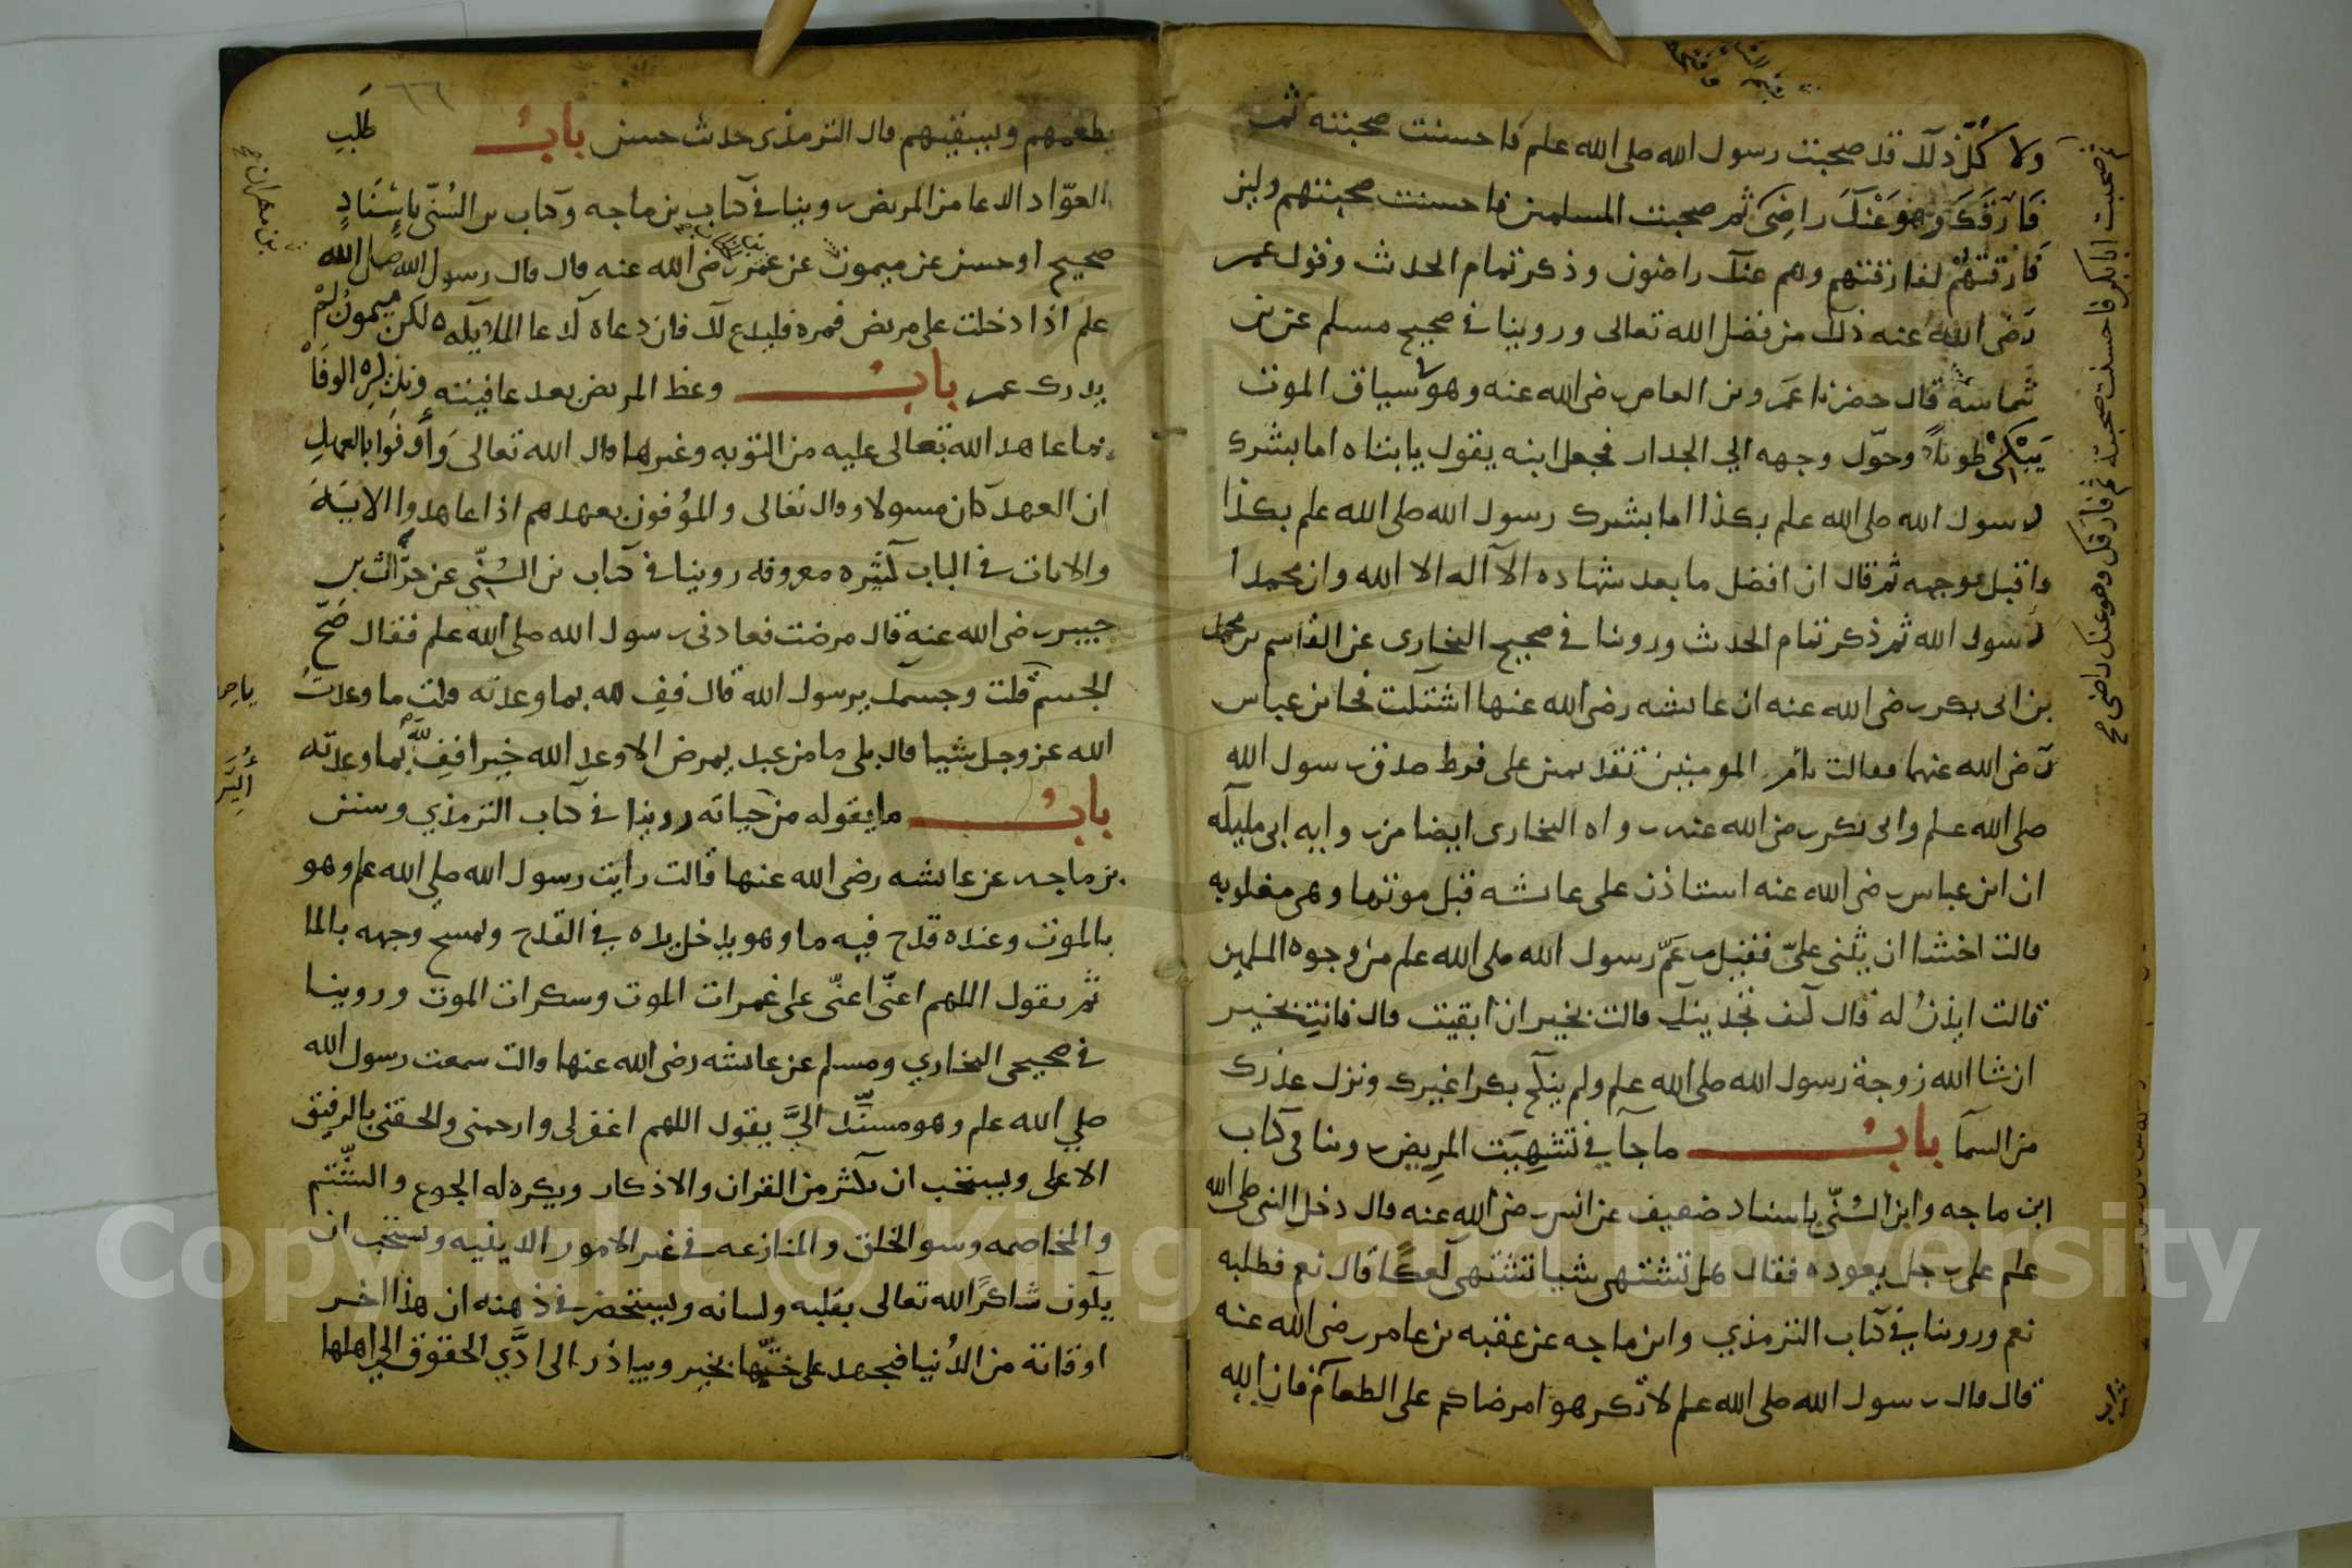 ولا كُلّ ذلك قد صحبت رسول الله صلى الله علم فاحسنت صحبته ثم
فَارَقَكَ وهوَ عَنْكَ راضِىَ ثم صحبت المسلمين فاحسنت صحبتهم ولين
فَارقتهُمْ لفارقتهم وهم عنك راضون وذكر تمام الحدث وقول عمر
رَضى الله عنه ذلك من فضل الله تعالى وروينا في صحيح مسلم عن بن
شُماسة قال حضرنا عَمرو بن العاص رضى الله عنه وهو سياق الموت
يَبْكىْ طويلاً وحوّل وجهه الي الجدار فجعل ابنه يقول يابتاه اما بشرك
رسول الله صلى الله علم بكذا اما بشرك رسول الله صلى الله علم بكذا
واقبل بوجهه ثم قال ان افضل ما بعد شهاده الا اله الا الله وان محمدا
رسول الله ثم ذكر تمام الحدث وروينا في صحيح البخارى عن القاسم بن محمد
بن ابى بكر رضى الله عنه ان عايشه رضى الله عنها اشتكت فجا بن عباس
رَضى الله عنهما فقالت يأم المومنين تقدمين على فرط صدق رسول الله
صلى الله علم وابى بكر رضى الله عنه رواه البخارى ايضا من روايه ابى مليكه
ان ابن عباس رضى الله عنه استاذن على عايشه قبل موتها وهى مغلوبه
قالت اخشا ان يثنى علىّ فقيل بن عَمّ رسول الله صلى الله علم من وجوه المسلمين
قالت ايذنُ له قال كيف تجدينك قالت بخير ان ابقيت قال فانتِ بخير
ان شا الله زوجة رسول الله صلى الله علم ولم ينكح بكرا غيرك ونزل عذرك
من السمآ بابُ ماجآ في تشهِيَت المرِيض روينا فى كتاب
ابن ماجه وابن السُنّى باسناد ضعيف عن انس رضى الله عنه قال دخل النبى صلى الله
علم على رجل يعوده فقال هل تشتهى شيا تشتهى كعكًا قال نعم فطلبه
نعم وروينا في كتاب الترمذي وابن ماجه عن عقبه بن عامر رضى الله عنه
قال قال رسول الله صلى الله علم لا تكرهوا مرضاكم على الطعام فان الله
ثم صحبت ابا بكر فاحسنت صحبته ثم فارقك وهو عنك راضى صح
٦٦
يطعمهم ويسقيهم قال الترمذى حدث حسن بابُ طَلَبِ
العوّاد الدعا من المريض روينا في كتاب بن ماجه وكتاب بن السُنّى باِسْنَادٍ
صحيح او حسن عن ميمون عن عمر رضى الله عنه قال قال رسول الله صلى الله
علم اذا دخلت على مريض فمره فليدع لك فان دعاه كدعا الملايكه لكن ميمونُ لمْ
يدرك عمر بابُ وعظ المريض بعد عافيته وتذكيره الوفَاْ
بما عاهد الله تعالى عليه من التوبه وغيرها قال الله تعالى وَأوفوا بالعهدِ
ان العهد كان مسولا وقال تعَالى والموُفون بعهدهم اذا عاهدوا الايَةَ
والايات في الباب كثيره معروفه روينا في كتاب بن السُنّي عن خوّات بن
جبير رضى الله عنه قال مرضت فعادنى رسول الله صلى الله علم فقال صَحّ
الجسم قلت وجسمك يرسول الله قال ففِ لله بما وعدته قلت ما وعدتُ
الله عز وجل شيا قال بلى ما من عبد يمرض الا وعد الله خيرا ففِ للَّه بما وعدته
بابُ ما يقوله من حياته روينا في كتاب الترمذي وسنن
بن ماجه عن عايشه رضى الله عنها قالت رايت رسول الله صلي الله علم وهو
بالموت وعنده قدح فيه ما وهو يدخل يده في القدح ويمسح وجهه بالما
ثم يقول اللهم اعنّى اعنّى على غمرات الموت وسكرات الموت وروينا
في صحيحى البخاري ومسلم عن عايشه رضى الله عنها قالت سمعت رسول الله
صلي الله علم وهو مستند اليَّ يقول اللهم اغفر لى وارحمنى والحقنى بالرفيق
الاعلى ويستحب ان يكثر من القران والاذكار ويكره له الجزع والشتم
والمخاصمه وسو الخلق والمنازعه في غير الامور الدينيه ويستحب ان
يكون شاكرًا لله تعالى بقلبه ولسانه ويستحضر في ذهنه ان هذا اخر
اوقاته من الدُنيا فيجهد على ختمها بخير ويباذر الى ادَّي الحقوق الي اهلها
Copyright © King Saud University